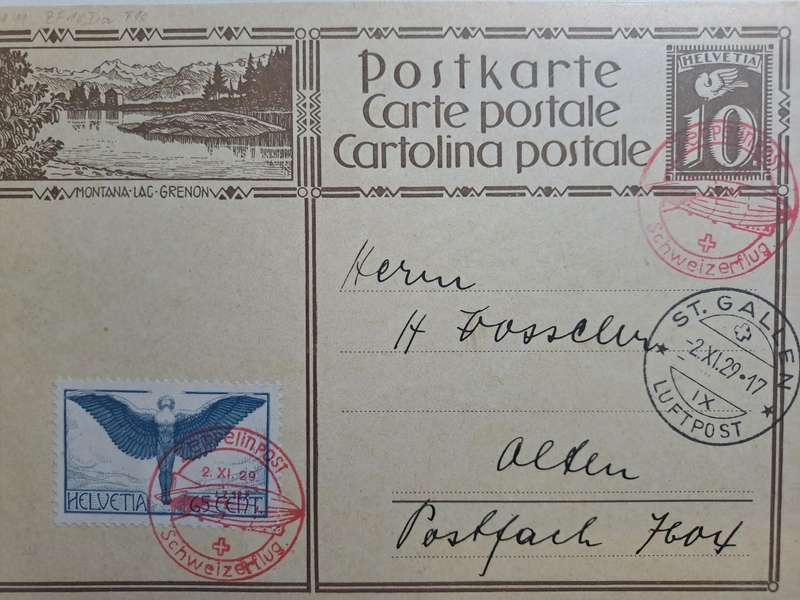 Postkarte
Carte postale
Cartolina postale
HELVETIA
10
MONTANA-LAC-GRENON
Schweizerflug
Herrn
H
ST. GALLEN
-2.XI.29•17
IX
LUFTPOST
HELVETIA
65 CENT.
Zeppelinpost
2. XI. 29
Schweizerflug
Olten
Postfach